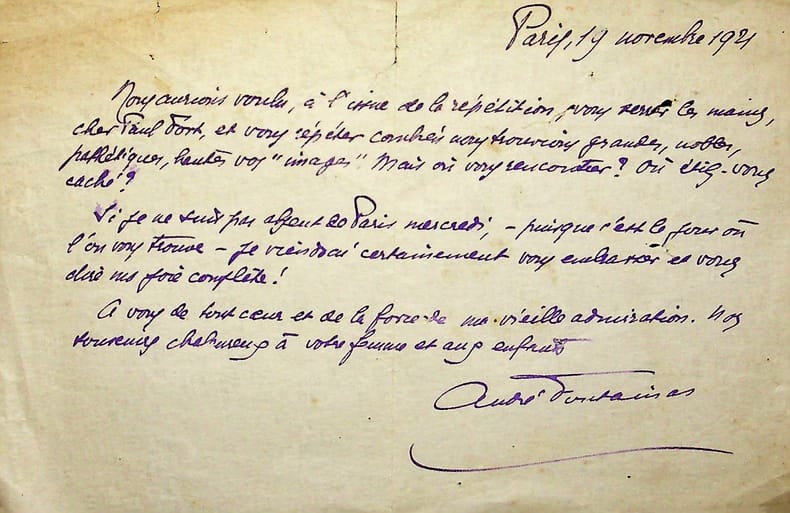 Paris, 19 novembre 1921
Nous aurions voulu, à l'issue de la répétition, vous serrer les mains,
cher Paul Fort, et vous répéter combien nous trouvions grandes, nobles,
pathétiques, hautes vos "images". Mais où vous rencontrer? Où étiez-vous
caché?
Si je ne suis pas absent de Paris mercredi, - puisque c'est le jour où
l'on vous trouve - je viendrai certainement vous embrasser et vous
dire ma joie complète!
A vous de tout cœur et de la force de ma vieille admiration. Nos
souvenirs chaleureux à votre femme et aux enfants
André Fontainas